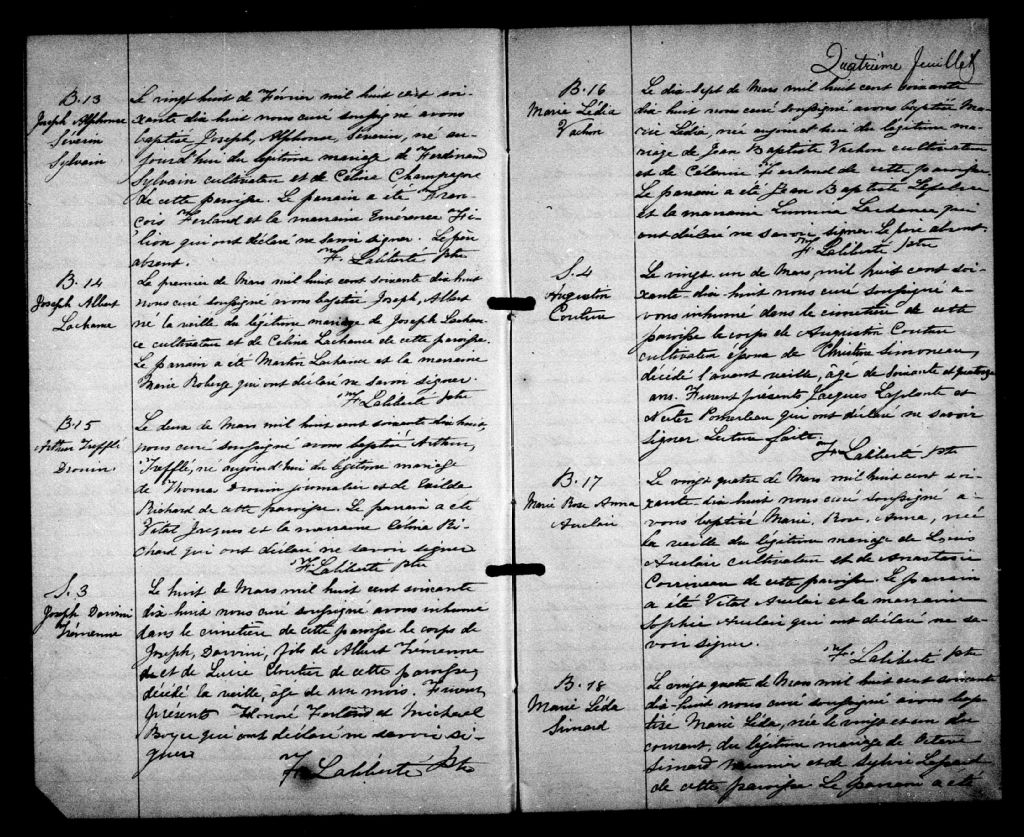 B.13
Joseph Alphonse
Séverin
Sylvain
Le vingt huit de Février mil huit cent soi-
xante dix huit nous curé soussigné avons
baptisé Joseph, Alphonse, Séverin, né au-
jourd'hui du légitime mariage de Ferdinand
Sylvain cultivateur et de Célina Champagne
de cette paroisse. Le parrain a été Fran-
çois Ferland et la marraine Emérence Fi-
lion qui ont déclaré ne savoir signer. Le père
absent. F. Laliberté Ptre
B.14
Joseph Albert
Lachance
Le premier de Mars mil huit cent soixante dix huit
nous curé soussigné avons baptisé Joseph, Albert
né la veille du légitime mariage de Joseph Lachan-
ce cultivateur et de Celina Lachance de cette paroisse.
Le parrain a été Martin Lachance et la marraine
Marie Roberge qui ont déclaré ne savoir signer.
F. Laliberté Ptre
B.15
Arthur Trefflé
Drouin
Le deux de Mars mil huit cent soixante dix huit,
nous curé soussigné avons baptisé Arthur,
Trefflé, né aujourd'hui du légitime mariage
de Thomas Drouin journalier et de
Richard de cette paroisse. Le parrain a été
Vital Jacques et la marraine Celina Ri-
chard qui ont déclaré ne savoir signer
F. Laliberté Ptre
S.3
Joseph Darvini
Trémenne
Le huit de Mars mil huit cent soixante
dix-huit nous curé soussigné avons inhumé
dans le cimetière de cette paroisse le corps de
Joseph, Darvini, fils de Albert Trémenne
et de Lucie Cloutier de cette paroisse,
décédé la veille, âgé de un mois. Furent
présents Honoré Ferland et Michael
qui ont déclaré ne savoir si-
gner
F. Laliberté Ptre
Quatrième feuillet
B.16
Marie Lédia
Vachon
Le dix sept de Mars mil huit cent soixante
dix huit nous curé soussigné avons baptisé Ma-
rie Lédia, née aujourd'hui du légitime ma-
riage de Jean Baptiste Vachon cultivateur
et de Célanire Ferland de cette paroisse.
Le parrain a été Jean Baptiste Lefebvre
et la marraine Lumina Lachance qui
ont déclaré ne savoir signer. Le père absent.
F. Laliberté Ptre
S.4
Augustin
Couture
Le vingt un de Mars mil huit cent soi-
xante-dix-huit nous curé soussigné a-
vons inhumé dans le cimetière de cette
paroisse le corps de Augustin Couture
cultivateur époux de Christine Simoneau,
décédé l'avant veille, âgé de soixante et quatorze
ans. Furent présents Jacques Laplante et
Pomerleau qui ont déclaré ne savoir
signer Lecture faite.
F. Laliberté Ptre
B.17
Marie Rose Anna
Auclair
Le vingt quatre de Mars mil huit cent soi-
xante-dix-huit nous curé soussigné a-
vons baptisé Marie, Rose, Anna, née
la veille du légitime mariage de Louis
Auclair cultivateur et de Anastasie
Corriveau de cette paroisse. Le parrain
a été Vital Auclair et la marraine
Sophie Auclair qui ont déclaré ne sa-
voir signer.
F. Laliberté Ptre
B.18
Marie Léda
Simard
Le vingt quatre de Mars mil huit cent soixante
dix-huit nous curé soussigné avons bap-
tisé Marie Léda, née le vingt et un du
courant, du légitime mariage de Octave
Simard meunier et de Sylvie Lessard
de cette paroisse. Le parrain a été